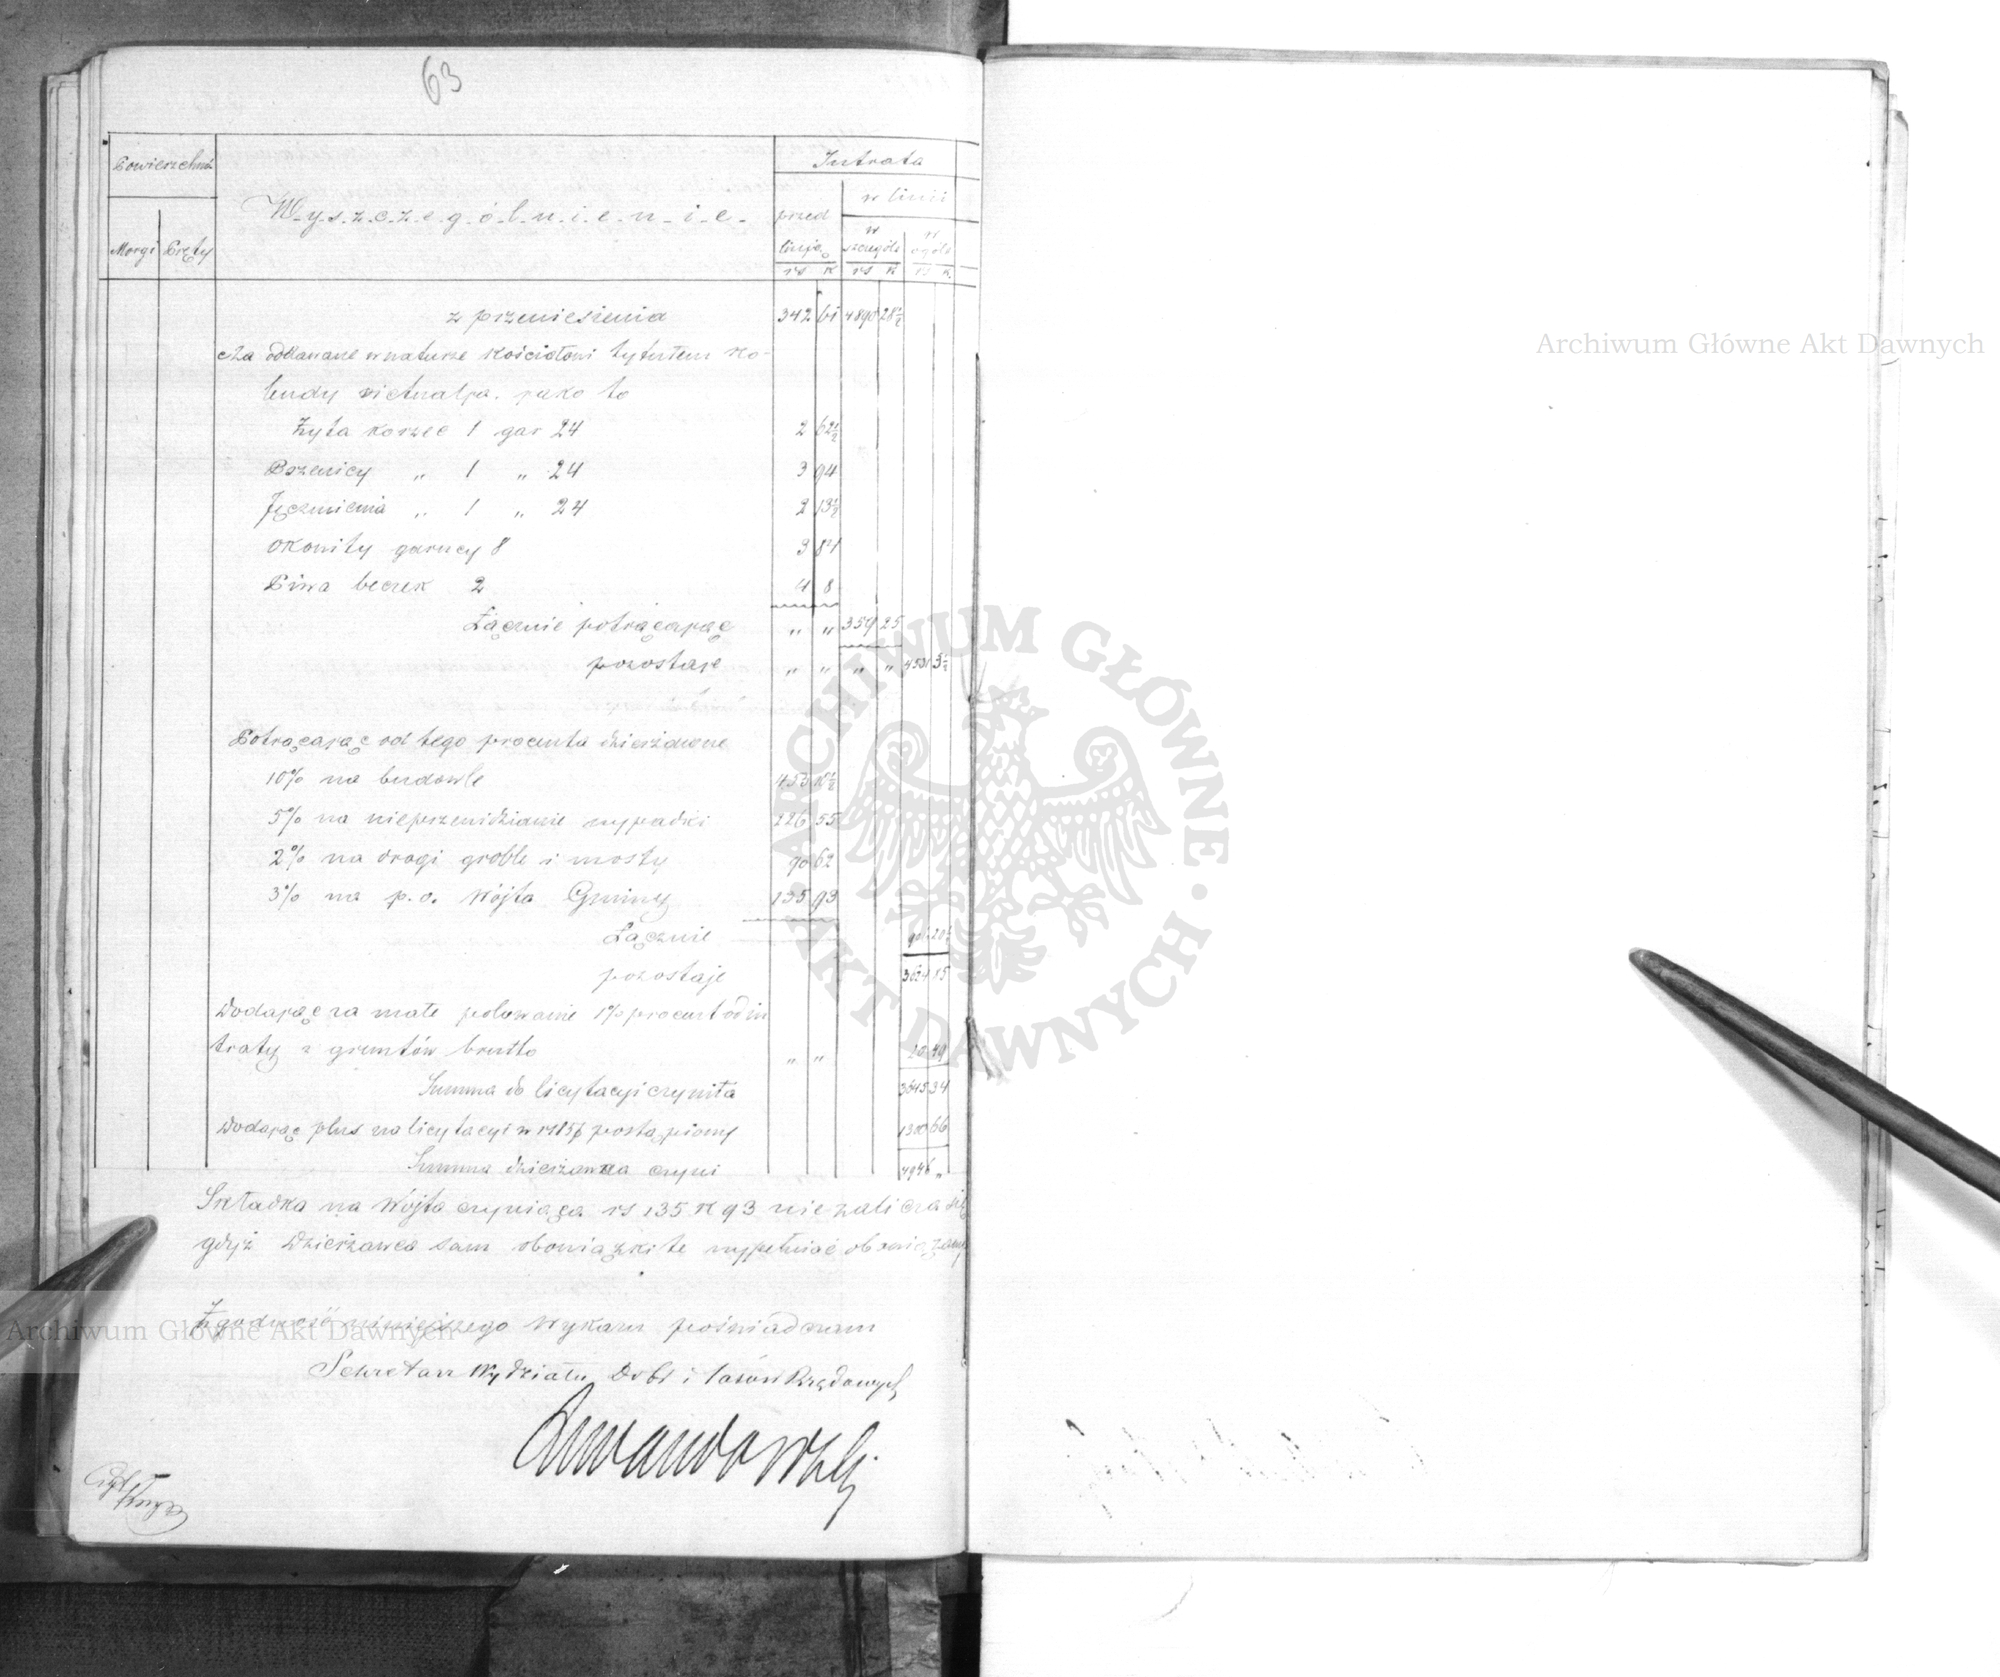 63
Powierzchnia
Intrata
W-y-s-z-c-z-e-g-ó-l-n-i-e-n-i-e-
przed
w linii
Morgi Pręty
linją
w szczególe
w ogóle
rs k rs k rs k.
z przeniesienia 342 61 4890 28½
Za oddawane w naturze kościołowi tytułem ko-
lendy wictualja. jako to
Żyta korzec 1 gar 24 2 62½
Pszenicy " 1 " 24 3 94
Jęczmienia " 1 " 24 2 13½
Okowity garncy 8 3 84
Piwa beczek 2 4 8
Łącznie potrącając " " 359 25
pozostaje " " " " 4531 3½
Potrącając od tego procenta dzierżawne
10% na budowle 453 10½
5% na nieprzewidziane wypadki 226 55
2% na drogi groble i mosty 90 62
3% na p.o. Wójta Gminy 135 93
Łącznie 906 20½
pozostaje 3624 85
Dodając za małe polowanie 1% procent od in
traty z gruntów brutto " " 20 49
Summa do licytacyi czyniła 3645 34
Dodając plus na licytacyi w postąpiony 1300 66
Summa dzierżawna czyni 4946 "
Składka na Wójta czyniąca rs 135 k 93 nie zalicza się
gdyż Dzierżawca sam obowiązki te wypełniać obowiązany
Zgodność niniejszego Wykazu poświadczam
Sekretarz Wydziału Dobr i Lasów Rządowych
Archiwum Główne Akt Dawnych
Archiwum Główne Akt Dawnych
ARCHIWUM GŁÓWNE · AKT DAWNYCH ·